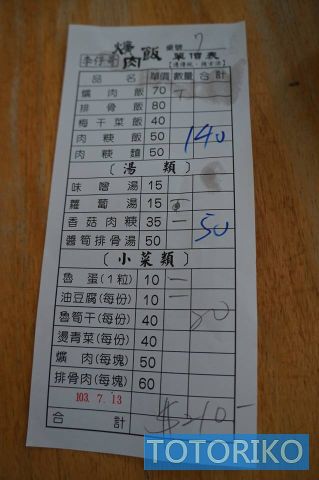 李仔哥 爌肉飯 桌號 7
單價表
品名 單價 數量 合計
爌肉飯 70 T
排骨飯 80
梅干菜飯 40
肉粳飯 50 140
肉粳麵 50
〔湯類〕
味噌湯 15
蘿蔔湯 15
香菇肉粳 35 一 50
醬筍排骨湯 50
〔小菜類〕
魯蛋(1粒) 10 一
油豆腐(每份) 10 一 20
魯筍干(每份) 40
燙青菜(每份) 40
爌肉(每塊) 50
排骨肉(每塊) 60
103.7.13
合計 $210-
TOTORIKO